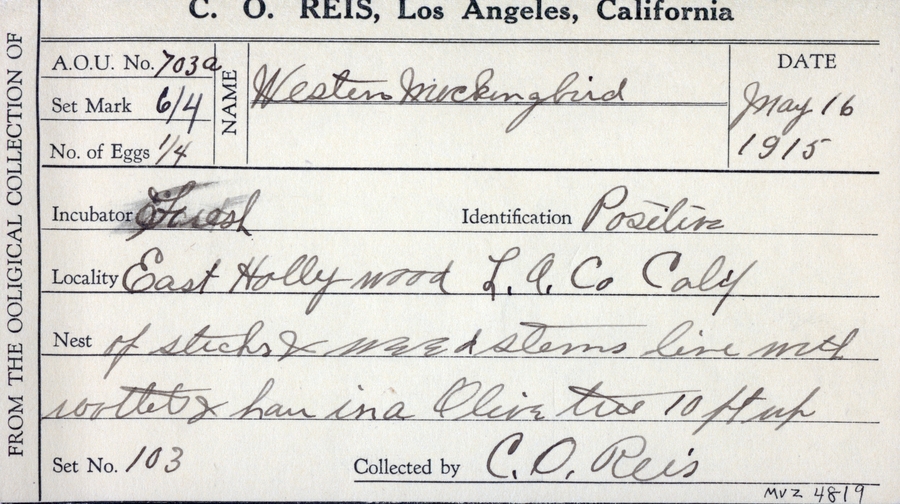 C. O. REIS, Los Angeles, California
FROM THE OOLIGICAL COLLECTION OF
A.O.U. No. 703a
Set Mark 6/4
No. of Eggs 1/4
NAME
Western Mockingbird
DATE
May 16
1915
Incubator Fresh
Identification Positive
Locality East Hollywood L.A. Co Calif
Nest of sticks & weed stems line with
rootlets & hair in a Olive tree 10 ft up
Set No. 103
Collected by C. O. Reis
MVZ 4819